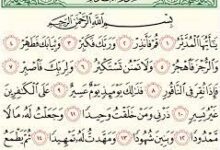 بِسْمِ ٱللَّهِ ٱلرَّحْمَٰنِ ٱلرَّحِيمِ
يَٰٓأَيُّهَا ٱلْمُدَّثِّرُ ١ قُمْ فَأَنذِرْ ٢ وَرَبَّكَ فَكَبِّرْ ٣ وَثِيَابَكَ فَطَهِّرْ ٤
وَٱلرُّجْزَ فَٱهْجُرْ ٥ وَلَا تَمْنُن تَسْتَكْثِرُ ٦ وَلِرَبِّكَ فَٱصْبِرْ ٧
فَإِذَا نُقِرَ فِى ٱلنَّاقُورِ ٨ فَذَٰلِكَ يَوْمَئِذٍ يَوْمٌ عَسِيرٌ ٩ عَلَى ٱلْكَٰفِرِينَ
غَيْرُ يَسِيرٍ ١٠ ذَرْنِى وَمَنْ خَلَقْتُ وَحِيدًا ١١ وَجَعَلْتُ لَهُۥ مَالًا
مَّمْدُودًا ١٢ وَبَنِينَ شُهُودًا ١٣ وَمَهَّدتُّ لَهُۥ تَمْهِيدًا ١٤ ثُمَّ يَطْمَعُ